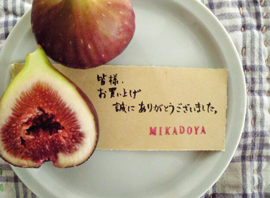 皆様、
お買い上げ
誠にありがとうございました。
MIKADOYA